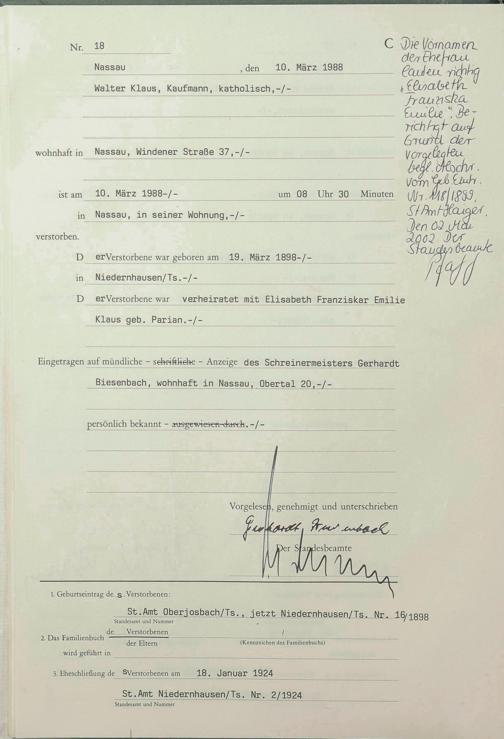 Nr. 18
Nassau, den 10. März 1988
Walter Klaus, Kaufmann, katholisch,-/-
wohnhaft in Nassau, Windener Straße 37,-/-
ist am 10. März 1988-/- um 08 Uhr 30 Minuten
in Nassau, in seiner Wohnung,-/-
verstorben.
D erVerstorbene war geboren am 19. März 1898-/-
in Niedernhausen/Ts.-/-
D erVerstorbene war verheiratet mit Elisabeth Franziskar Emilie
Klaus geb. Parian.-/-
Eingetragen auf mündliche - schriftliche - Anzeige des Schreinermeisters Gerhardt
Biesenbach, wohnhaft in Nassau, Obertal 20,-/-
persönlich bekannt - ausgewiesen durch.-/-
Vorgelesen, genehmigt und unterschrieben
Gerhardt
Der Standesbeamte
1. Geburtseintrag de s Verstorbenen:
St.Amt Oberjosbach/Ts., jetzt Niedernhausen/Ts. Nr. 16/1898
Standesamt und Nummer
2. Das Familienbuch de Verstorbenen /
der Eltern (Kennzeichen des Familienbuchs)
wird geführt in
3. Eheschließung de sVerstorbenen am 18. Januar 1924
St.Amt Niedernhausen/Ts. Nr. 2/1924
Standesamt und Nummer
C Die Vornamen
der Ehefrau
lauten richtig
„Elisabeth
Franziska
Emilie". Be-
richtigt auf
Grund der
vorgelegten
begl. Abschr.
vom Geb.Eintr.
Nr. 118/1899,
StAmt Haiger.
Den 02. Mai
2002 Der
Standesbeamte